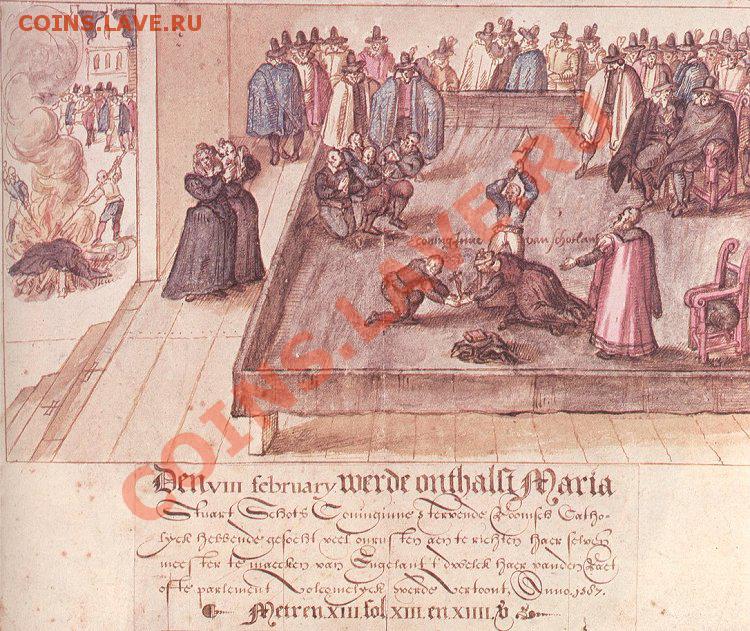 COINS.LAVE.RU
COINS.LAVE.RU
coninginne van schotlant
Den VIII february werde onthalst Maria
Stuart Schots Coninginne stervende Roomsch Catho-
lyck hebbende gesocht veel onrusten aen te richten haer selven
meester te maecken van Engelant t'dwelck haer vanden Raet
ofte parlement volcomelyck werde vertoont, Anno. 1587.
Meteren XIII. fol. XIII. en XIIII. b